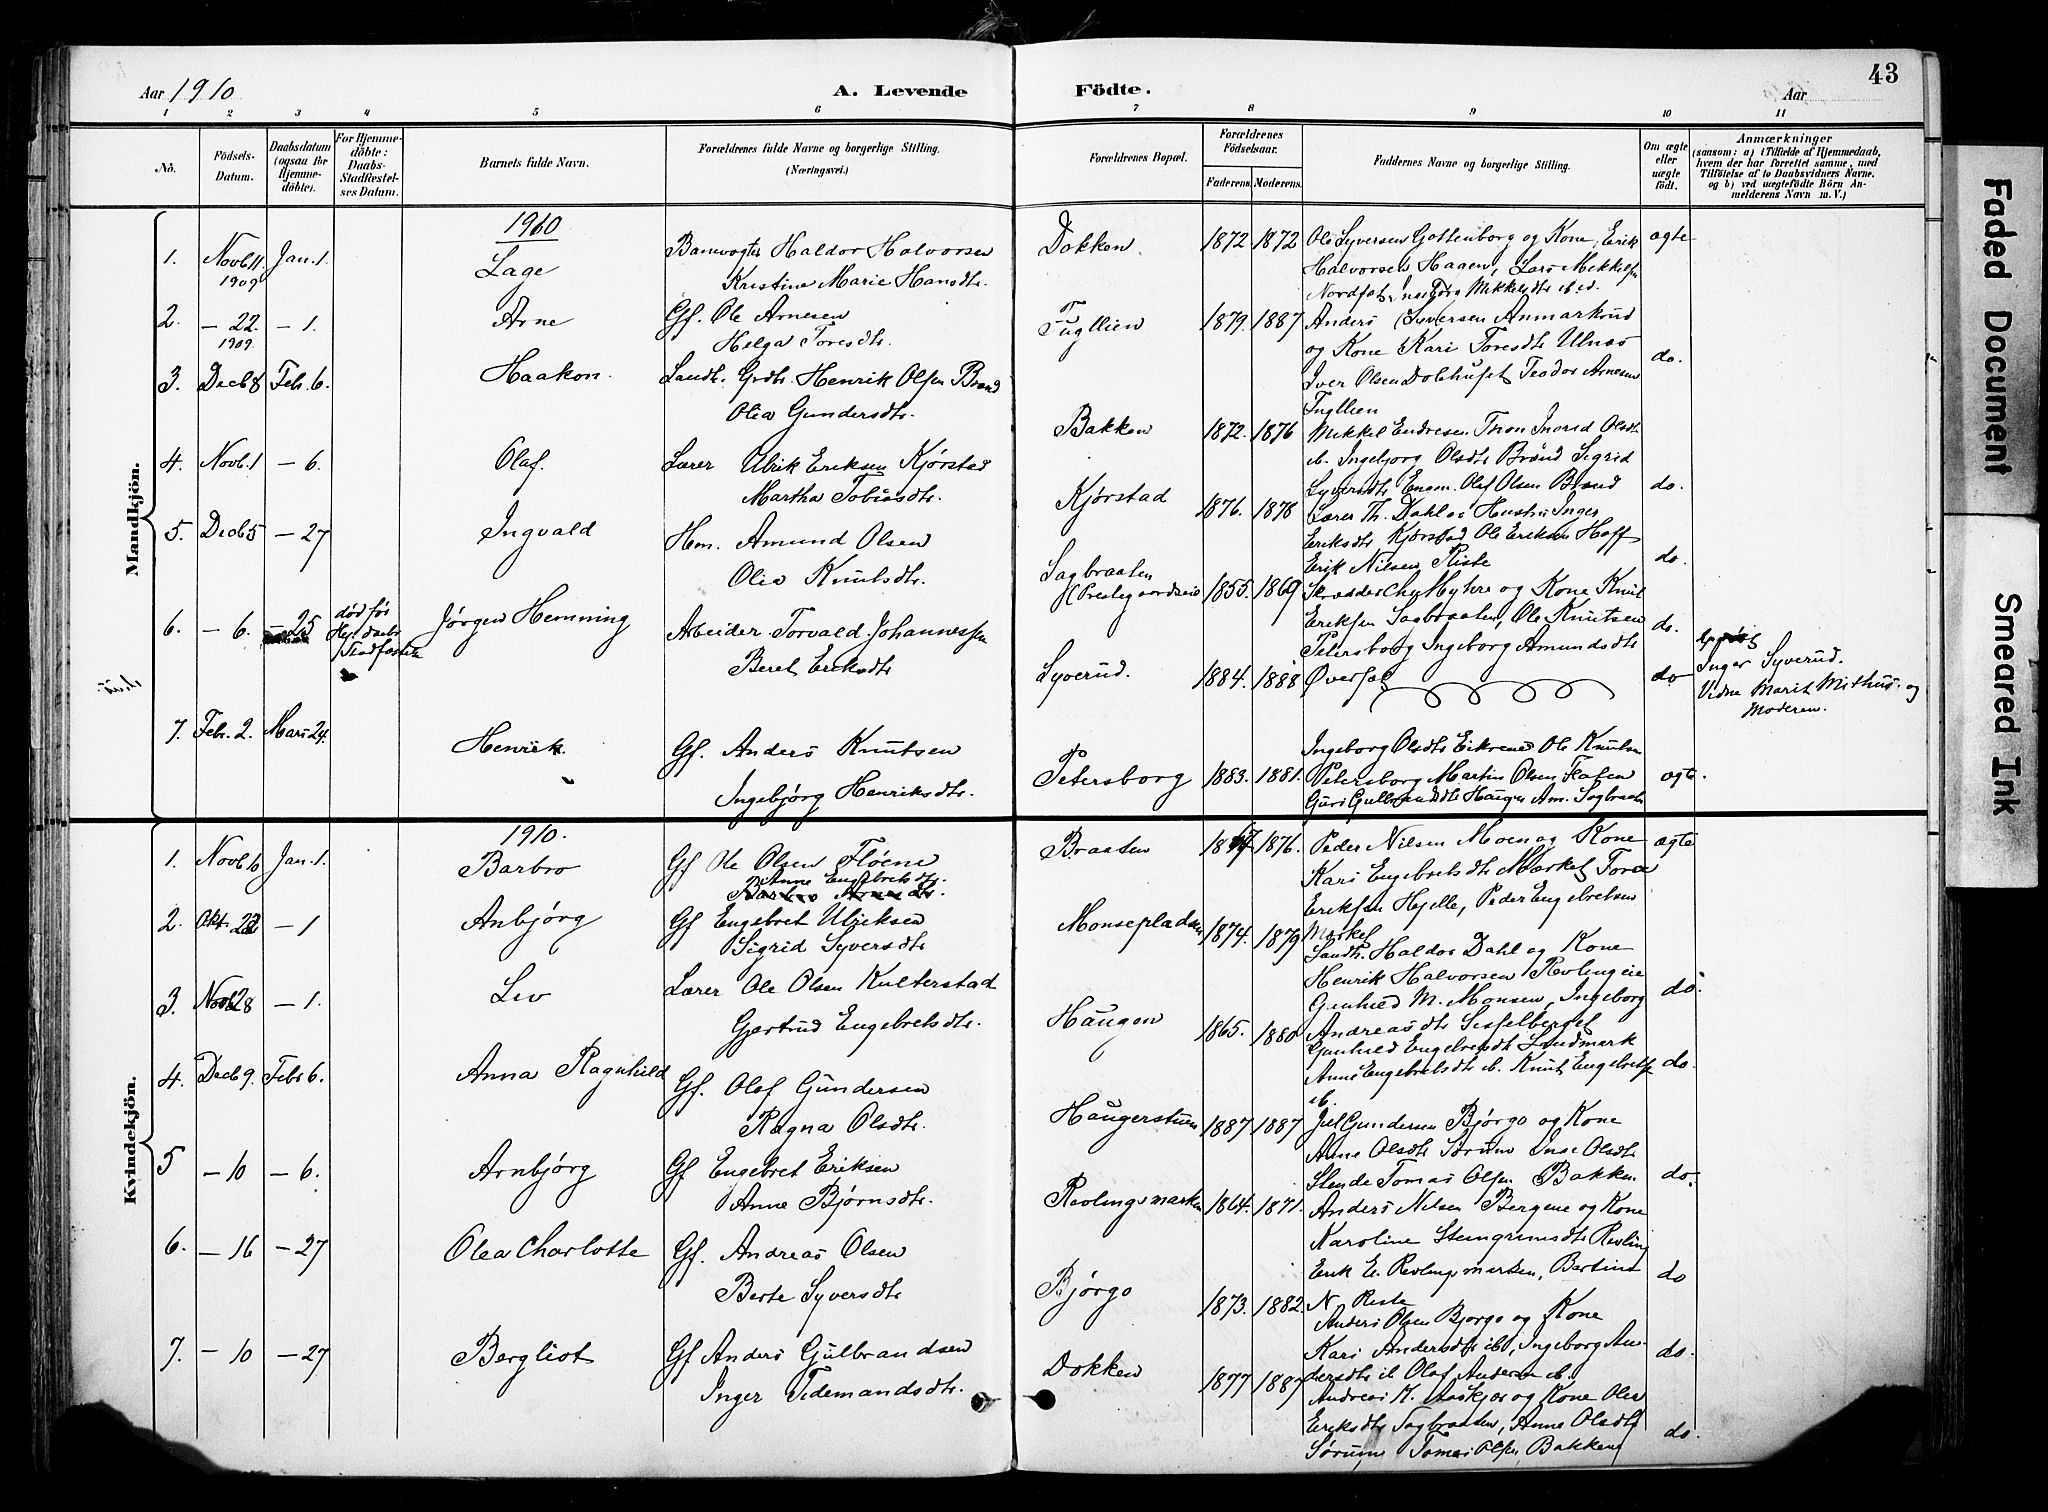 Aar 1910
A. Levende
Födte.
Aar
43
1 2 3 4 5 6 7 8 9 10 11
No.
Födsels-
Datum.
Daabsdatum
(ogsaa for
Hjemme-
döbte).
For Hjemme-
döbte:
Daabs-
Stadfæstel-
ses Datum.
Barnets fulde Navn.
Forældrenes fulde Navne og borgerlige Stilling.
(Næringsvei.)
Forældrenes Bopæl.
Forældrenes
Födselsaar.
Faderens. Moderens.
Faddernes Navne og borgerlige Stilling.
Om ægte
eller
uægte
födt.
Anmærkninger
(saasom: a) i Tilfælde af Hjemmedaab,
hvem der har forrettet samme, med
Tilföielse af to Daabsvidners Navne.
og b) ved uægtefödte Börn An-
melderens Navn m. V.)
Mandkjön.
1910
1. Novb. 11. 1909 Jan. 1. Lage
Banevogter Haldor Halvorsen
Kristine Marie Hansdtr.
Dokken 1872 1872
Ole Syversen Gottenborg og Kone, Erik
Halvorsen Haagen, Lars Mikkelsen
ægte
2. — 22. 1909. — 1. Arne
Gf. Ole Arnesen
Helga Toresdtr.
Fugllien 1879. 1887
Anders Syversen Anmarkrud
og Kone Kari Toresdtr Ulnæs
Iver Olsen Dolehuset Teodor Arnesen
Fugllien
do.
3. Decb 8 Feb. 6. Haakon.
Landh. Grdbr. Henrik Olsen Brænd
Olia Gundersdtr.
Bakken 1872. 1876
Mikkel Endresen Thon Ingrid Olsdtr
ib. Ingebjorg Olsdtr Brænd Sigrid
Syversdtr Engen. Olaf Olsen Brænd
do.
4. Novb. 1 — 6. Olaf.
Lærer Ulrik Eriksen Kjørstad
Martha Tobiasdtr.
Kjørstad 1876. 1878
Lærer Th. Dahl og Hustru Inger
Eriksdtr Kjørstad Ole Eriksen Hoff
Erik Nilsen Riste
do.
5. Decb 5 — 27 Ingvald
Hm. Amund Olsen
Olia Knutsdtr.
Sagbraaten
(Prestegaardseie 1855. 1869
Skrædder Chr Myhre og Kone Knut
Eriksen Sagbraaten, Ole Knutsen
Petersborg Ingeborg Amundsdtr
do.
6. — 6. — 25 død før
Stadfæstelse
Jørgen Hemming
Arbeider Torvald Johannessen
Beret Eriksdtr.
Syverud. 1884. 1888
Øverføl
do
Inger Syverud.
Vidne Marit Mithus. og
Moderen.
7. Feb. 2. Mars 24. Henrik.
Gf. Anders Knutsen
Ingebjørg Henriksdtr.
Petersborg 1883. 1881.
Ingeborg Olsdtr Eikrene Ole Knutsen
Petersborg Martin Olsen Floten
Guri Gulbrandsdtr Haugen Am. Sagbraaten
ægte.
Kvindekjön.
1910.
1. Novb 10 Jan. 1. Barbro
Gf Ole Olsen Fløene
Anne Engebretsdtr.
Braaten 1876.
Peder Nilsen Moen og Kone
Kari Engebretsdtr Markel Tore
Eriksen Hjelle, Peder Engebretsen
Markel
ægte
2. Okt. — 1 Anbjørg
Gf Engebret Ulriksen
Sigrid Syversdtr
Monsepladsen 1874. 1879
Landh. Haldor Dahl og Kone
Henrik Halvorsen Revlingeie
Gunhild M. Monsen, Ingeborg
Andreasdtr Sisselberget
do
3. Novb 28 — 1. Liv
Lærer Ole Olsen Kulterstad
Gjertrud Engebretsdtr.
Haugen 1865. 1880
Gunhild Engebretsdtr Landmark
Anne Engebretsdtr ib. Knut Engebretsen
ib.
do.
4. Decb 9. Febr 6. Anna Ragnhild
Gf. Olaf Gundersen
Ragna Olsdtr.
Haugerstuen 1887 1887
Jul Gundersen Bjørgo og Kone
Anne Olsdtr Sørum Inge Olsdtr
Stende Tomas Olsen Bakken
do.
5 — 10 — 6. Arnbjörg
Gf Engebret Eriksen
Anne Bjørnsdtr.
Revlingsmarken 1864. 1871.
Anders Nilsen Bergene og Kone
Karoline Steingrimsdtr Revling
Erik E. Revlingsmarken, Bertine
N Riste
do
6. — 16 — 27 Olea Charlotte
Gf. Andreas Olsen
Berte Syversdtr
Bjørgo 1873. 1882.
Anders Olsen Bjørgo og Kone
Kari Andersdtr ib, Ingeborg An-
dersdtr ib Olaf Andersen ib.
do.
7. — 10 — 27 Bergliot
Gf Anders Gulbrandsen
Inger Tidemandsdtr.
Dokken 1877 1887
Eriksdtr Sagbraaten, Anne Olsdtr
Sørum Tomas Olsen, Bakken
do.
Faded Document
Smeared Ink